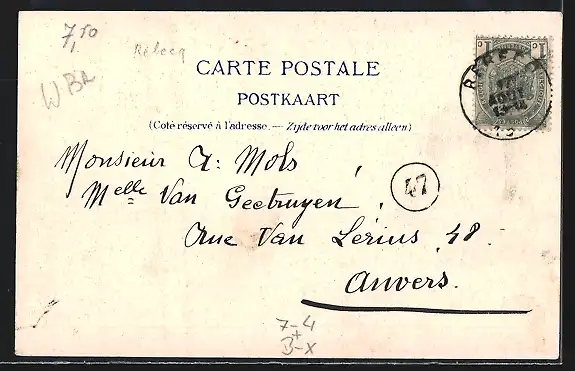 7,50
Rebecq
WBR
CARTE POSTALE
POSTKAART
(Coté réservé à l'adresse. — Zijde voor het adres alleen)
Monsieur A: Mols,
Melle Van Geetruyen.
47
Rue Van Lérius, 48.
Anvers.
7-4
+
B-X
1c 1c
AOUT